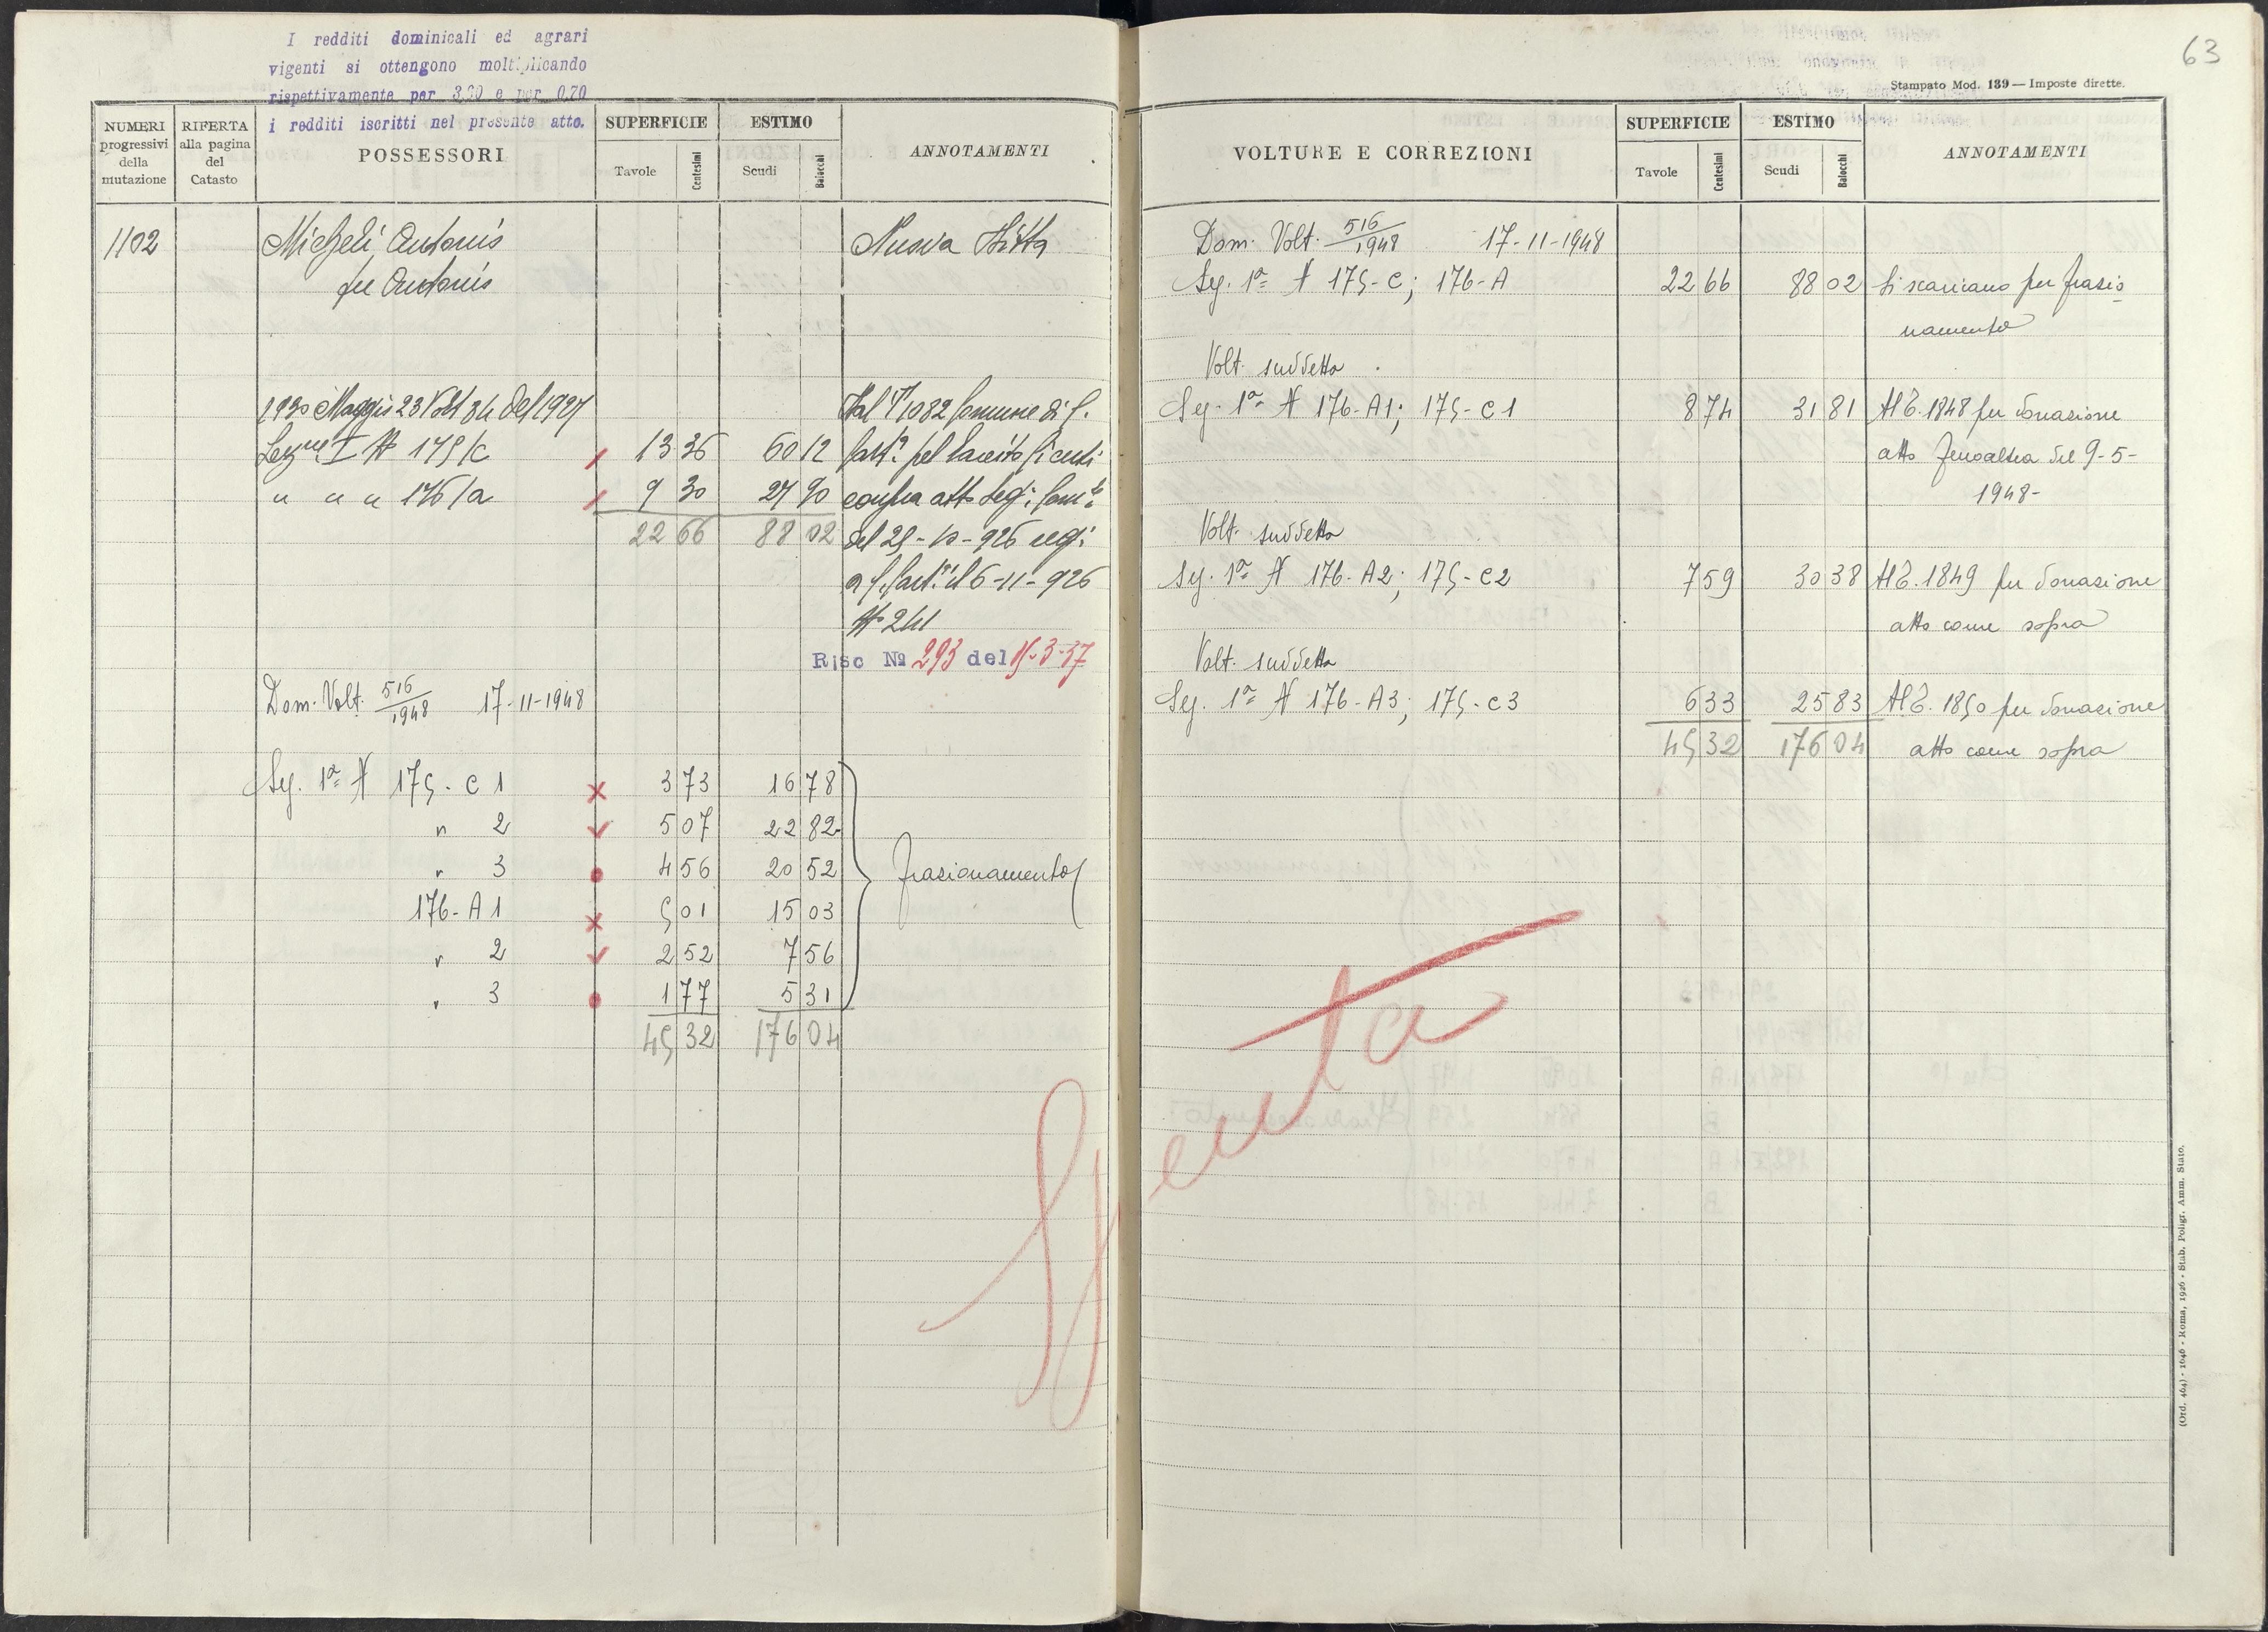 I redditi dominicali ed agrari
vigenti si ottengono moltiplicando
rispettivamente per 3,20 e per 0,70
i redditi iscritti nel presente atto.
NUMERI progressivi della mutazione
RIFERTA alla pagina del Catasto
POSSESSORI
SUPERFICIE
Tavole Centesimi
ESTIMO
Scudi Baiocchi
ANNOTAMENTI
1102 Micheli Antonio Nuova Ditta
fu Antonio
1930 Maggio 23 Volt 34 del 1927 Dal 1082 Comune di
Sezne I N 175/c 13 36 60 12
" " " 176/a 9 30 27 90
22 66 88 02 del 25-10-926 reg:
il 6-11-926
N 241
Risc No 293 del 15-3-37
Dom. Volt. 516/1948 17-11-1948
Sez. 1ª N 175-C 1 3 73 16 78
" 2 5 07 22 82
" 3 4 56 20 52 frazionamento
176-A 1 5 01 15 03
" 2 2 52 7 56
" 3 1 77 5 31
45 32 176 04
63
Stampato Mod. 139 — Imposte dirette.
VOLTURE E CORREZIONI
SUPERFICIE
Tavole Centesimi
ESTIMO
Scudi Baiocchi
ANNOTAMENTI
Dom. Volt. 516/1948 17-11-1948
Sez. 1ª N 175-C; 176-A 22 66 88 02 Si scaricano per frazio
namento
Volt. suddetta
Sez. 1ª N 176-A1; 175-C1 8 74 31 81 Al 1848 per donazione
atto Fenoaltea del 9-5-
1948-
Volt. suddetta
Sez. 1ª N 176-A2; 175-C2 7 59 30 38 Al 1849 per donazione
atto come sopra
Volt. suddetta
Sez. 1ª N 176-A3; 175-C3 6 33 25 83 Al 1850 per donazione
45 32 176 04 atto come sopra
Spenta
(Ord. 464) - 1046 - Roma, 1926 - Stab. Poligr. Amm. Stato.